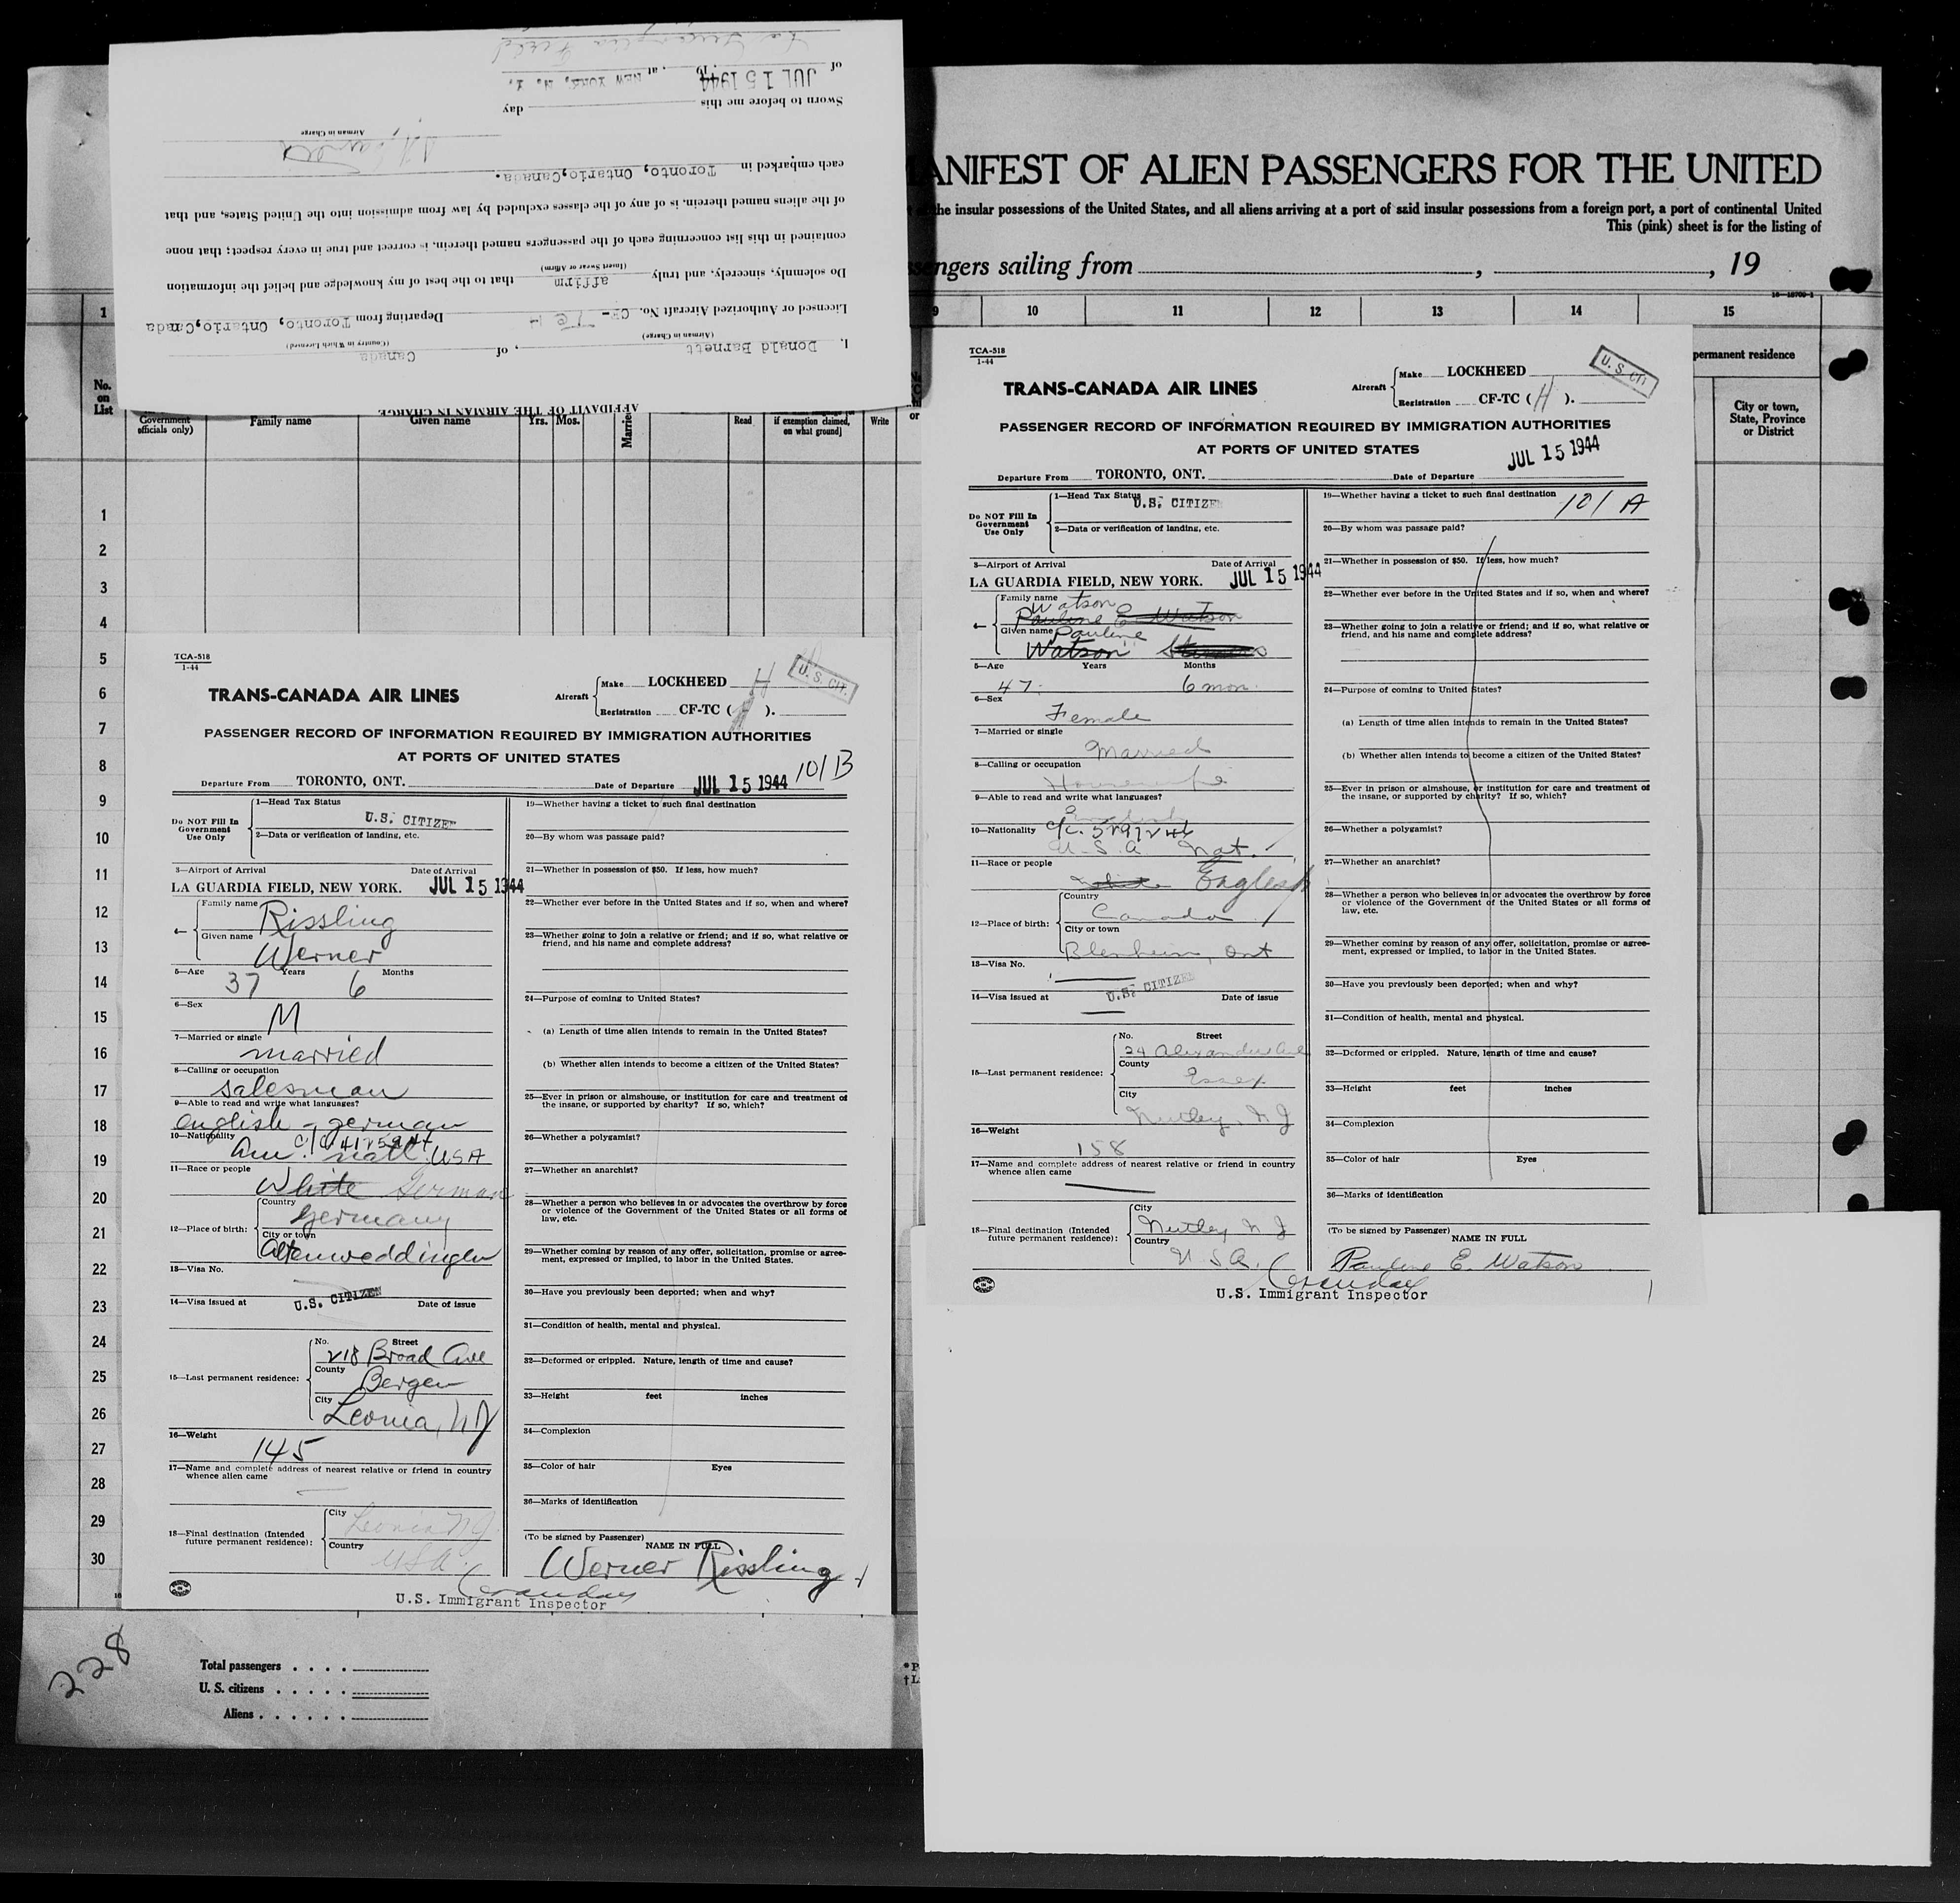 AFFIDAVIT OF THE AIRMAN IN CHARGE
I, Donald Barnett, of Canada
(Airman in Charge) (Country in Which Licensed)
Licensed or Authorized Aircraft No. CF- TCH Departing from Toronto, Ontario, Canada
Do solemnly, sincerely, and truly affirm that to the best of my knowledge and belief the information
(Insert Swear or Affirm)
contained in this list concerning each of the passengers named therein, is correct and true in every respect; that none
of the aliens named therein, is of any of the classes excluded by law from admission into the United States, and that
each embarked in Toronto, Ontario, Canada.
Airman in Charge
Sworn to before me this day
of JUL 15 1944, 19 , at NEW YORK, N. Y.
ANIFEST OF ALIEN PASSENGERS FOR THE UNITED
the insular possessions of the United States, and all aliens arriving at a port of said insular possessions from a foreign port, a port of continental United
This (pink) sheet is for the listing of
ssengers sailing from , , 19
16—18700-1
1 9 10 11 12 13 14 15
No. on List
Government officials only)
Family name Given name Yrs. Mos. Married Read if exemption claimed, on what ground] Write or
permanent residence
City or town, State, Province or District
1
2
3
4
5
6
7
8
9
10
11
12
13
14
15
16
17
18
19
20
21
22
23
24
25
26
27
28
29
30
TCA-518
1-44
TRANS-CANADA AIR LINES
Aircraft Make LOCKHEED H
Registration CF-TC ( ).
U. S. CIT.
PASSENGER RECORD OF INFORMATION REQUIRED BY IMMIGRATION AUTHORITIES
AT PORTS OF UNITED STATES
101 B
Departure From TORONTO, ONT. Date of Departure JUL 15 1944
Do NOT Fill In Government Use Only
1—Head Tax Status
U.S. CITIZEN
2—Data or verification of landing, etc.
3—Airport of Arrival Date of Arrival
LA GUARDIA FIELD, NEW YORK. JUL 15 1944
4— Family name Rissling
Given name Werner
5—Age 37 Years 6 Months
6—Sex M
7—Married or single married
8—Calling or occupation salesman
9—Able to read and write what languages?
english - german
10—Nationality
Am. natl. USA
11—Race or people
White German
12—Place of birth: Country Germany
City or town Altenweddingen
13—Visa No.
14—Visa issued at U.S. CITIZEN Date of issue
15—Last permanent residence: No. Street
218 Broad Ave
County Bergen
City Leonia, NJ
16—Weight 145
17—Name and complete address of nearest relative or friend in country whence alien came
18—Final destination (Intended future permanent residence): City Leonia NJ
Country USA
U.S. Immigrant Inspector
19—Whether having a ticket to such final destination
20—By whom was passage paid?
21—Whether in possession of $50. If less, how much?
22—Whether ever before in the United States and if so, when and where?
23—Whether going to join a relative or friend; and if so, what relative or friend, and his name and complete address?
24—Purpose of coming to United States?
(a) Length of time alien intends to remain in the United States?
(b) Whether alien intends to become a citizen of the United States?
25—Ever in prison or almshouse, or institution for care and treatment of the insane, or supported by charity? If so, which?
26—Whether a polygamist?
27—Whether an anarchist?
28—Whether a person who believes in or advocates the overthrow by force or violence of the Government of the United States or all forms of law, etc.
29—Whether coming by reason of any offer, solicitation, promise or agreement, expressed or implied, to labor in the United States.
30—Have you previously been deported; when and why?
31—Condition of health, mental and physical.
32—Deformed or crippled. Nature, length of time and cause?
33—Height feet inches
34—Complexion
35—Color of hair Eyes
36—Marks of identification
(To be signed by Passenger)
NAME IN FULL
Werner Rissling
228
Total passengers
U. S. citizens
Aliens
TCA-518
1-44
TRANS-CANADA AIR LINES
Aircraft Make LOCKHEED
Registration CF-TC ( H ).
U. S. CIT.
PASSENGER RECORD OF INFORMATION REQUIRED BY IMMIGRATION AUTHORITIES
AT PORTS OF UNITED STATES
Departure From TORONTO, ONT. Date of Departure JUL 15 1944
Do NOT Fill In Government Use Only
1—Head Tax Status
U.S. CITIZEN
2—Data or verification of landing, etc.
3—Airport of Arrival Date of Arrival
LA GUARDIA FIELD, NEW YORK. JUL 15 1944
4— Family name Watson
Pauline E Watson
Given name Pauline
Watson
5—Age Years Months
47 6 mon.
6—Sex Female
7—Married or single Married
8—Calling or occupation
Housewife
9—Able to read and write what languages?
English
10—Nationality
U.S.A. Nat.
11—Race or people
White English
12—Place of birth: Country Canada
City or town Blenheim, Ont
13—Visa No.
14—Visa issued at U.S. CITIZEN Date of issue
15—Last permanent residence: No. Street
24 Alexander Ave
County Essex
City Nutley, N J
16—Weight 158
17—Name and complete address of nearest relative or friend in country whence alien came
18—Final destination (Intended future permanent residence): City Nutley N J
Country U.S.A.
U.S. Immigrant Inspector
19—Whether having a ticket to such final destination
101 A
20—By whom was passage paid?
21—Whether in possession of $50. If less, how much?
22—Whether ever before in the United States and if so, when and where?
23—Whether going to join a relative or friend; and if so, what relative or friend, and his name and complete address?
24—Purpose of coming to United States?
(a) Length of time alien intends to remain in the United States?
(b) Whether alien intends to become a citizen of the United States?
25—Ever in prison or almshouse, or institution for care and treatment of the insane, or supported by charity? If so, which?
26—Whether a polygamist?
27—Whether an anarchist?
28—Whether a person who believes in or advocates the overthrow by force or violence of the Government of the United States or all forms of law, etc.
29—Whether coming by reason of any offer, solicitation, promise or agreement, expressed or implied, to labor in the United States.
30—Have you previously been deported; when and why?
31—Condition of health, mental and physical.
32—Deformed or crippled. Nature, length of time and cause?
33—Height feet inches
34—Complexion
35—Color of hair Eyes
36—Marks of identification
(To be signed by Passenger)
NAME IN FULL
Pauline E. Watson